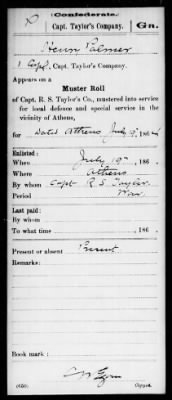 Confederate.
P Capt. Taylor's Company. Ga.
Henry Palmer
1 Corpl, Capt. Taylor's Company.
Appears on a
Muster Roll
of Capt. R. S. Taylor's Co., mustered into service
for local defence and special service in the
vicinity of Athens,
for dated Athens July 19, 1864
Enlisted:
When July 19th, 186 .
Where Athens
By whom Capt R. S. Taylor
Period War
Last paid:
By whom
To what time , 186 .
Present or absent Present
Remarks:
Book mark:
(650) Copyist.